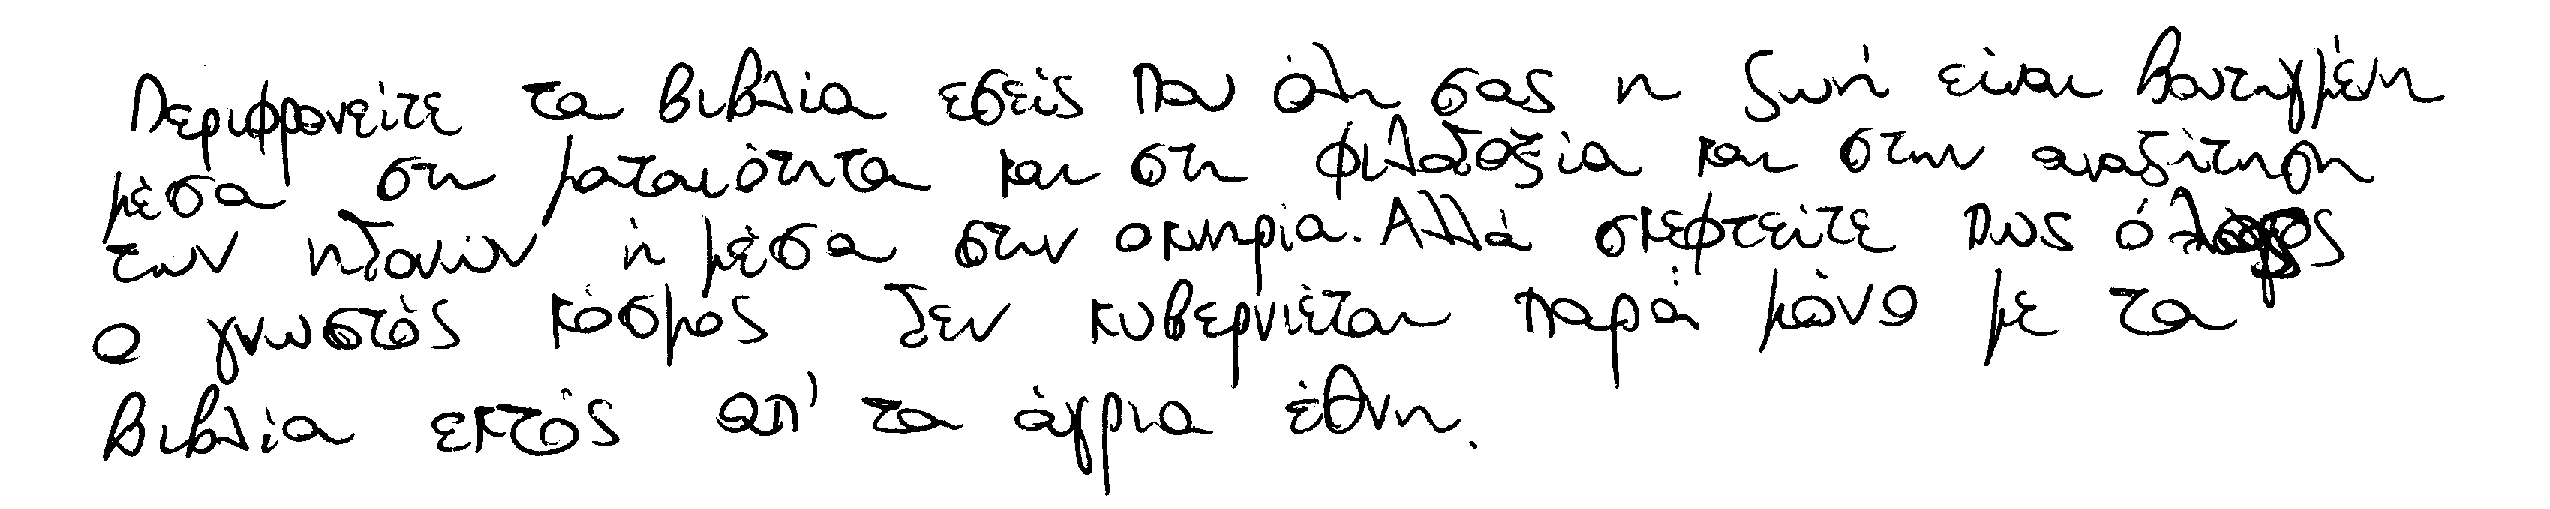 Περιφρονείτε τα βιβλία εσείς που όλη σας η ζωή είναι βουτηγμένη
μέσα στη ματαιότητα και στη φιλοδοξία και στην αναζήτηση
των ηδονών ή μέσα στην οκνηρία. Αλλά σκεφτείτε πως όλος
ο γνωστός κόσμος δεν κυβερνιέται παρά μόνο με τα
βιβλία εκτός απ' τα άγρια έθνη.